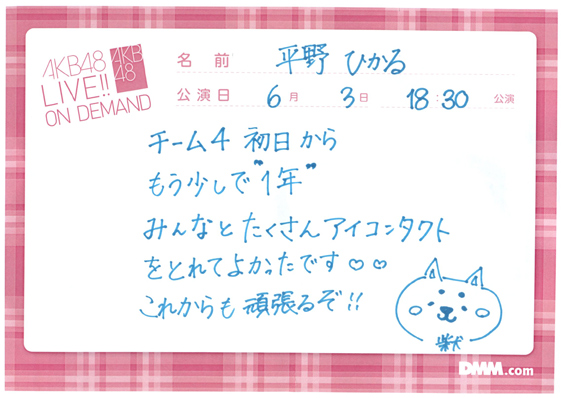 AKB48
LIVE!!
ON DEMAND
AKB
48
名前 平野 ひかる
公演日 6月 3日 18:30 公演
チーム4 初日から
もう少しで"1年"
みんなとたくさんアイコンタクト
をとれてよかったです♡♡
これからも頑張るぞ!!
柴犬
DMM.com